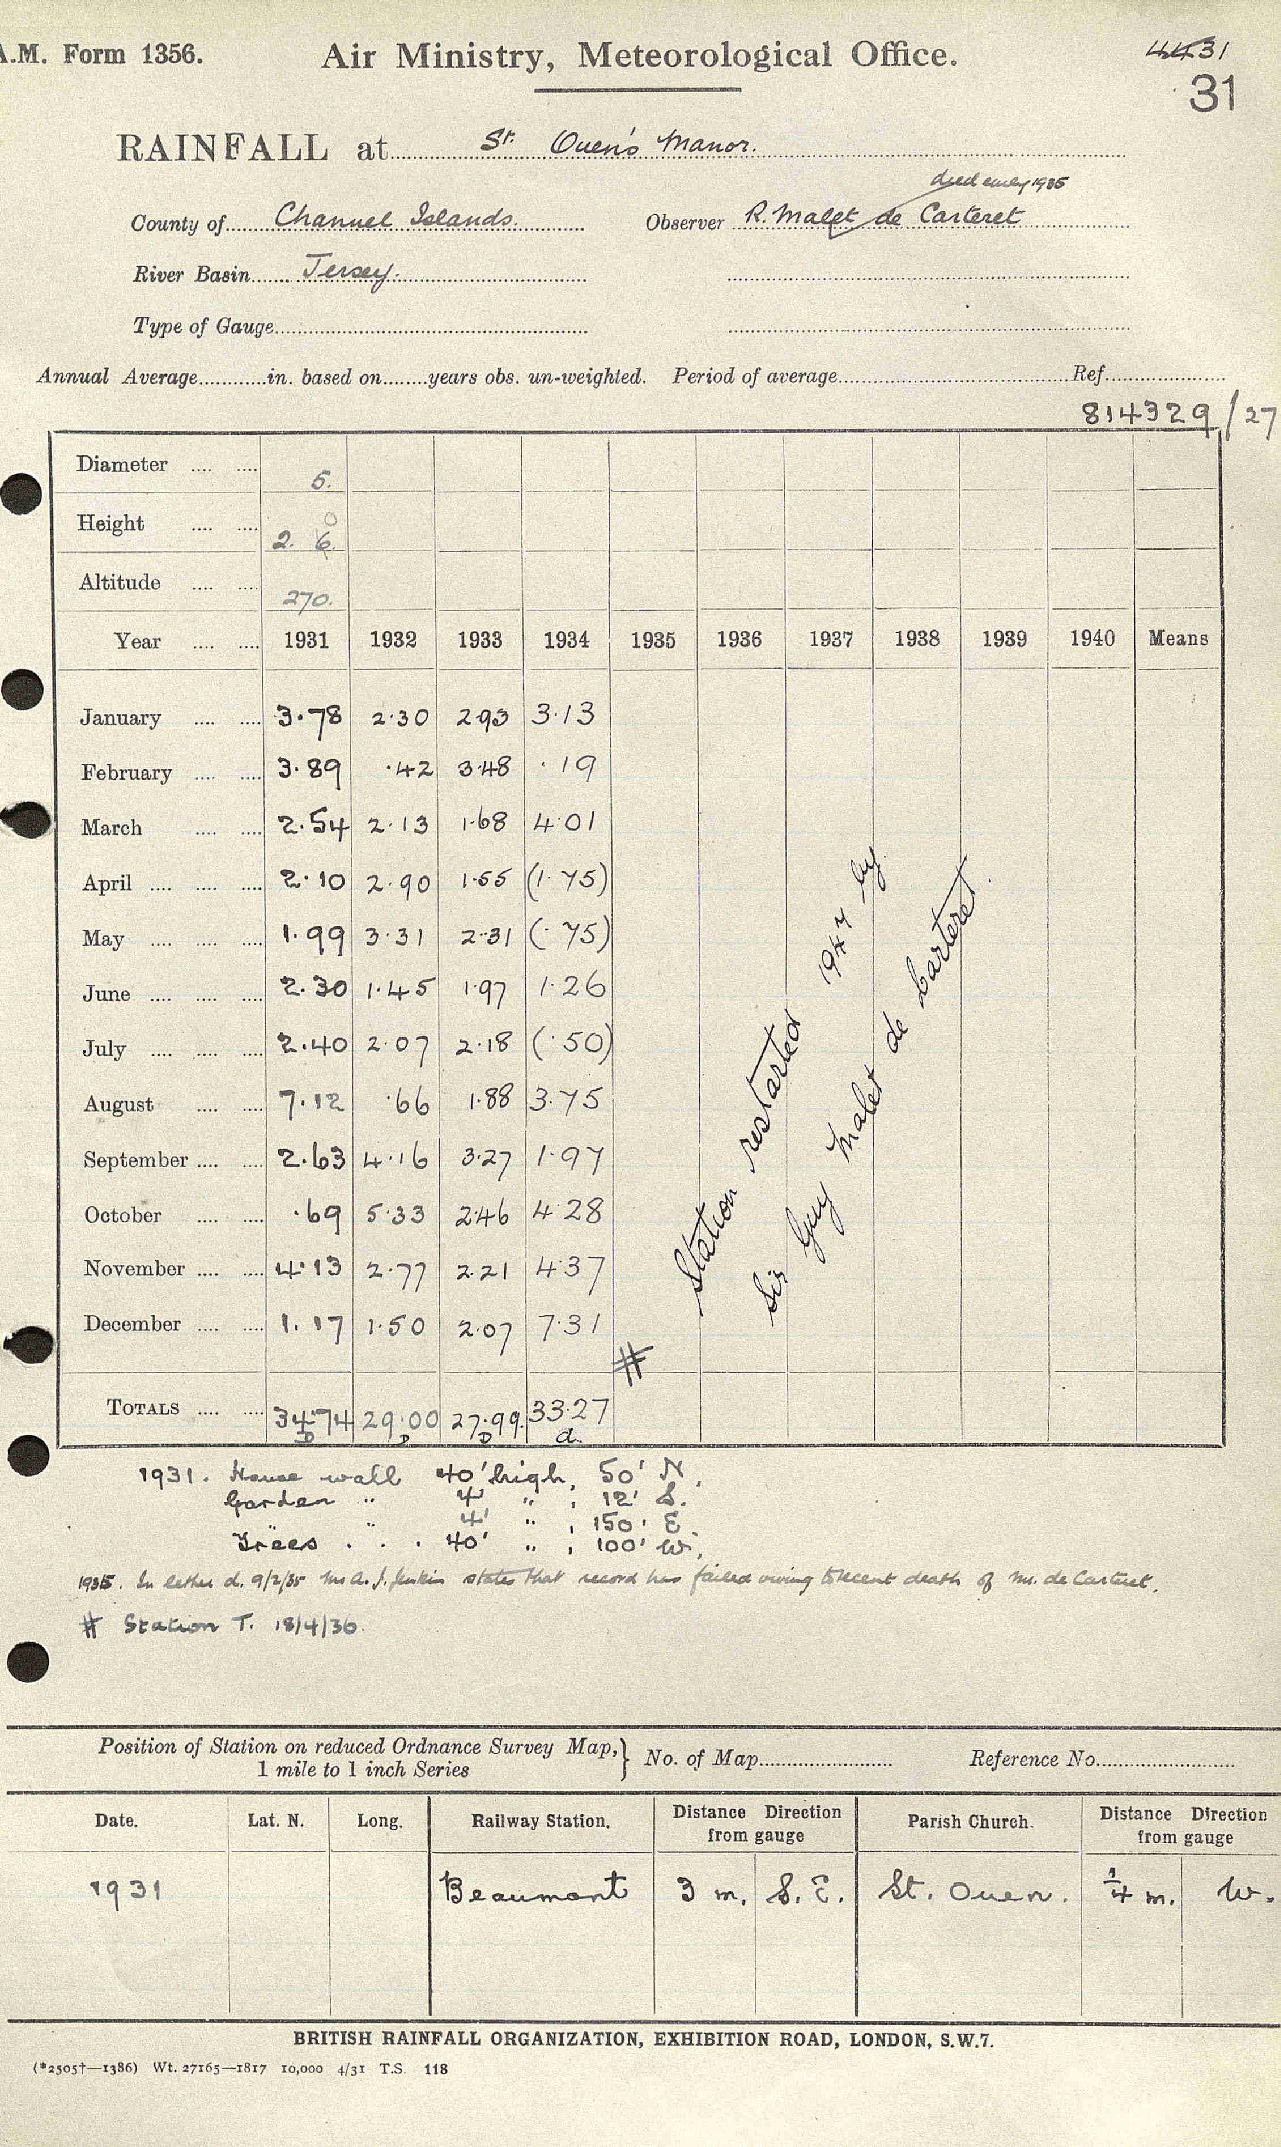 A.M. Form 1356.
Air Ministry, Meteorological Office.
4431
31
RAINFALL at St. Ouen's Manor.
died early 1935
County of Channel Islands. Observer R. Malet de Carteret
River Basin Jersey.
Type of Gauge
Annual Average in. based on years obs. un-weighted. Period of average Ref.
814329/27
Diameter 5.
Height 2. 6 0
Altitude 270.
Year 1931 1932 1933 1934 1935 1936 1937 1938 1939 1940 Means
January 3.78 2.30 2.93 3.13
February 3.89 .42 3.48 .19
March 2.54 2.13 1.68 4.01
April 2.10 2.90 1.55 (1.75)
May 1.99 3.31 2.31 (.75)
June 2.30 1.45 1.97 1.26
July 2.40 2.07 2.18 (.50)
August 7.12 .66 1.88 3.75
September 2.63 4.16 3.27 1.97
October .69 5.33 2.46 4.28
November 4.13 2.77 2.21 4.37
December 1.17 1.50 2.07 7.31
#
Totals 34.74 29.00 27.99 33.27
D D D d.
Station restarted 1947 by
Sir Guy Malet de Carteret.
1931. House wall 40' high, 50' N.
Garden " 4' " , 12' S.
" 4' " , 150' E.
Trees . . . 40' " , 100' W.
1935. In letter d. 9/2/35 Mr A. J. Jenkin states that record has failed owing to recent death of Mr. de Carteret.
# Station T. 18/4/36.
Position of Station on reduced Ordnance Survey Map, 1 mile to 1 inch Series } No. of Map Reference No.
Date. Lat. N. Long. Railway Station. Distance Direction from gauge Parish Church. Distance Direction from gauge
1931 Beaumont 3 m. S.E. St. Ouen. 1/4 m. W.
BRITISH RAINFALL ORGANIZATION, EXHIBITION ROAD, LONDON, S.W.7.
(*2505†—1386) Wt. 27165—1817 10,000 4/31 T.S. 118